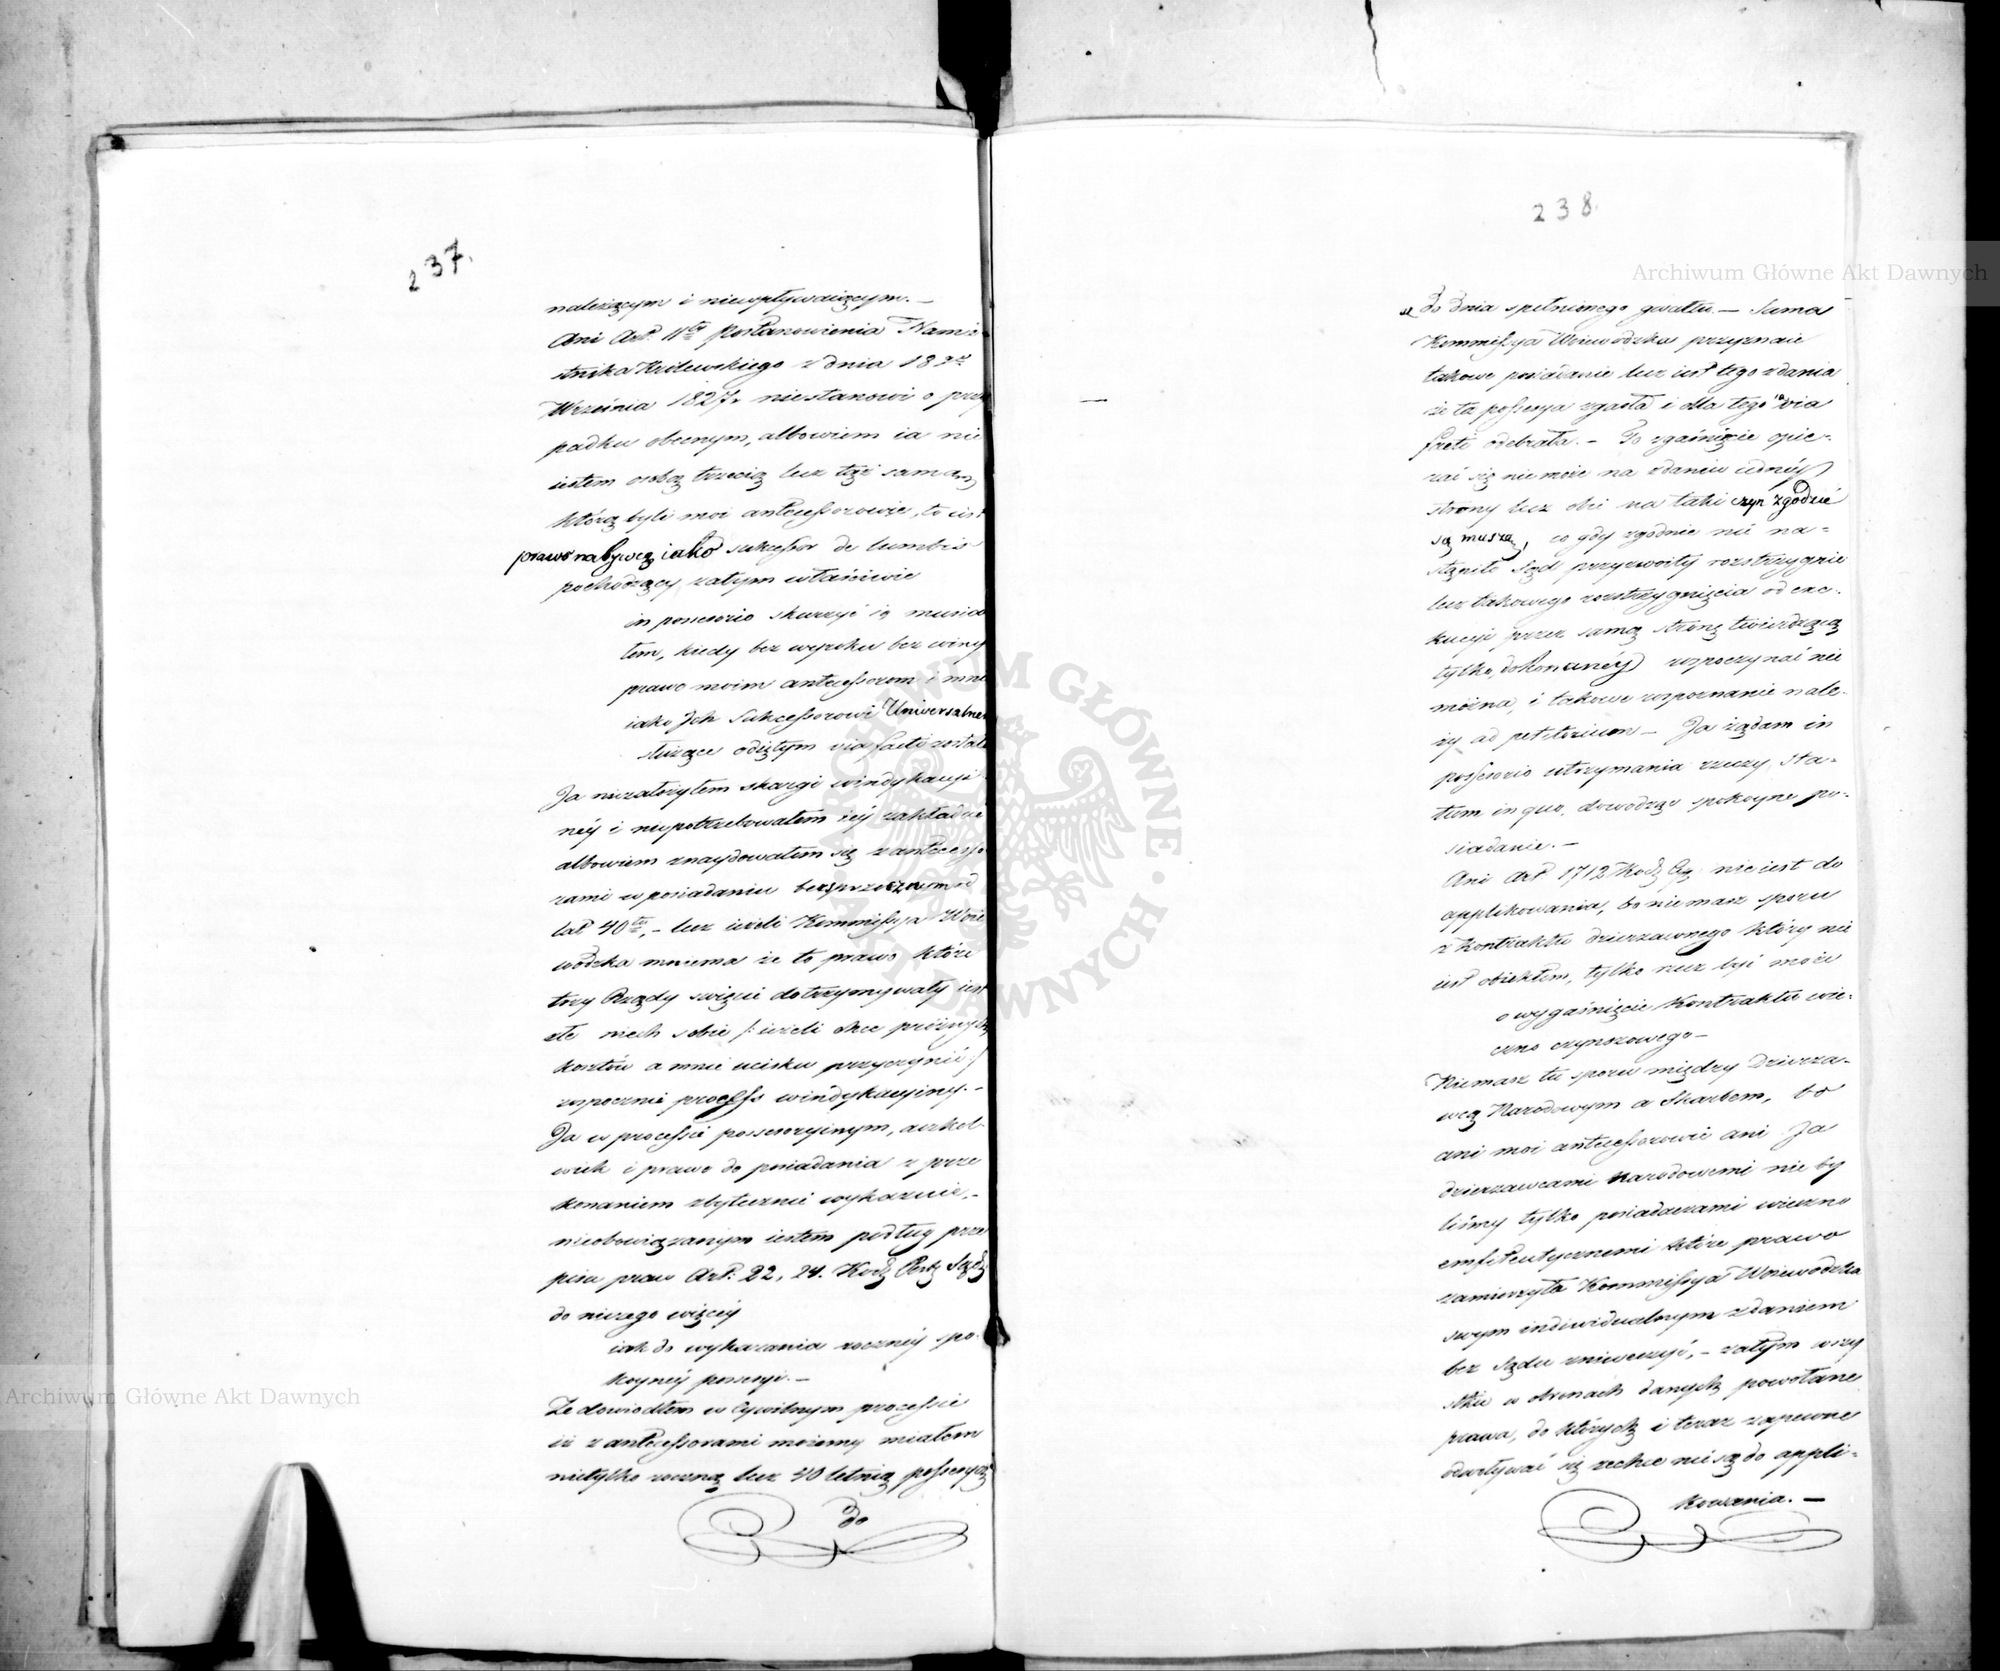 237.
należącym i niewpływaiącym. —
Ani Art. 11ty Postanowienia Namie-
stnika Królewskiego z dnia 18go
Września 1827r. niestanowi o przy
padku obecnym, albowiem ia nie
iestem osobą trzecią lecz tąż samą
którą byli moi antecessorowie, to iest
prawo nabywcą iako sukcessor de lumbis
pochodzący, zatym właściwie
in possesorio skarżyć się musia
łem, kiedy bez wyroku bez winy
prawo moim antecessorom i mnie
iako Ich Sukcessorowi Uniwersalne
służące odiętym via facti zostało
Ja niezałożyłem skargi windykacyi
néy i niepotrzebowałem iéy zakładać
albowiem znaydowałem się z antecesso
rami w posiadaniu bezsprzecznem od
lat 40tu, — lecz ieżeli Kommissya Woie
wódzka mniema że to prawo które
trzy Rządy święcie dotrzymywały iest
złe niech sobie /: ieżeli chce próżnych
kosztów a mnie ucisku przyczynić :/
rozpocznie process windykacyiny. —
Ja w processie possesoryinym, aczkol
wiek i prawo do posiadania z prze
konaniem zbytecznie wykazuię, —
nieobowiązanym iestem podług prze
pisu praw Art. 22, 24. Kod: Post: Sąd:
do niczego więcéy
iak do wykazania rocznéy spo-
koynéy possesyi. —
Że dowiodłem w Cywilnym processie
iż z antecessorami możemy miałem
nietylko roczną lecz 40 letnią possesyą
do
238.
do dnia spełnionego gwałtu. — Sama
Kommissya Woiewódzka przyznaie
takowe posiadanie lecz iest tego zdania
że ta possesya zgasła i dla tego ią via
facti odebrała. — To zgaśnięcie opie-
rać się nie może na zdaniu iednéy
strony lecz obie na taki czyn zgodzić
się muszą, co gdy zgodnie nie na-
stąpiło Sąd przyzwoity rozstrzygnie
lecz takowego rozstrzygnięcia od exe-
kucyi przez samą stronę twierdzącą
tylko, dokonanéy rozpoczynać nie
można, i takowe rozpoznanie nale-
ży ad petitorium — Ja żądam in
possesorio utrzymania rzeczy, sta-
tum in quo, dowodząc spokoyne po-
siadanie. —
Ani Art. 1712 Kod: Cy: nie iest do
applikowania, bo niemasz sporu
z kontraktu dzierżawnego który nie
iest obiektem, tylko rzecz być może
o wygaśnięcie Kontraktu wie-
czno czynszowego —
Niemasz tu sporu między Dzierża-
wcą Narodowym a Skarbem, bo
ani moi antecessorowie ani Ja
dzierżawcami Narodowemi nie by
liśmy tylko posiadaczami wieczno
emfiteutycznemi które prawo
zamierzyła Kommissya Woiewódzka
swym indiwidualnym zdaniem
bez Sądu zniweczyć, — zatym wszy
stkie w obronach danych powołane
prawa, do których i teraz zapewne
odwoływać się zechce nie są do appli-
kowania. —
Archiwum Główne Akt Dawnych
Archiwum Główne Akt Dawnych
ARCHIWUM GŁÓWNE · AKT DAWNYCH ·